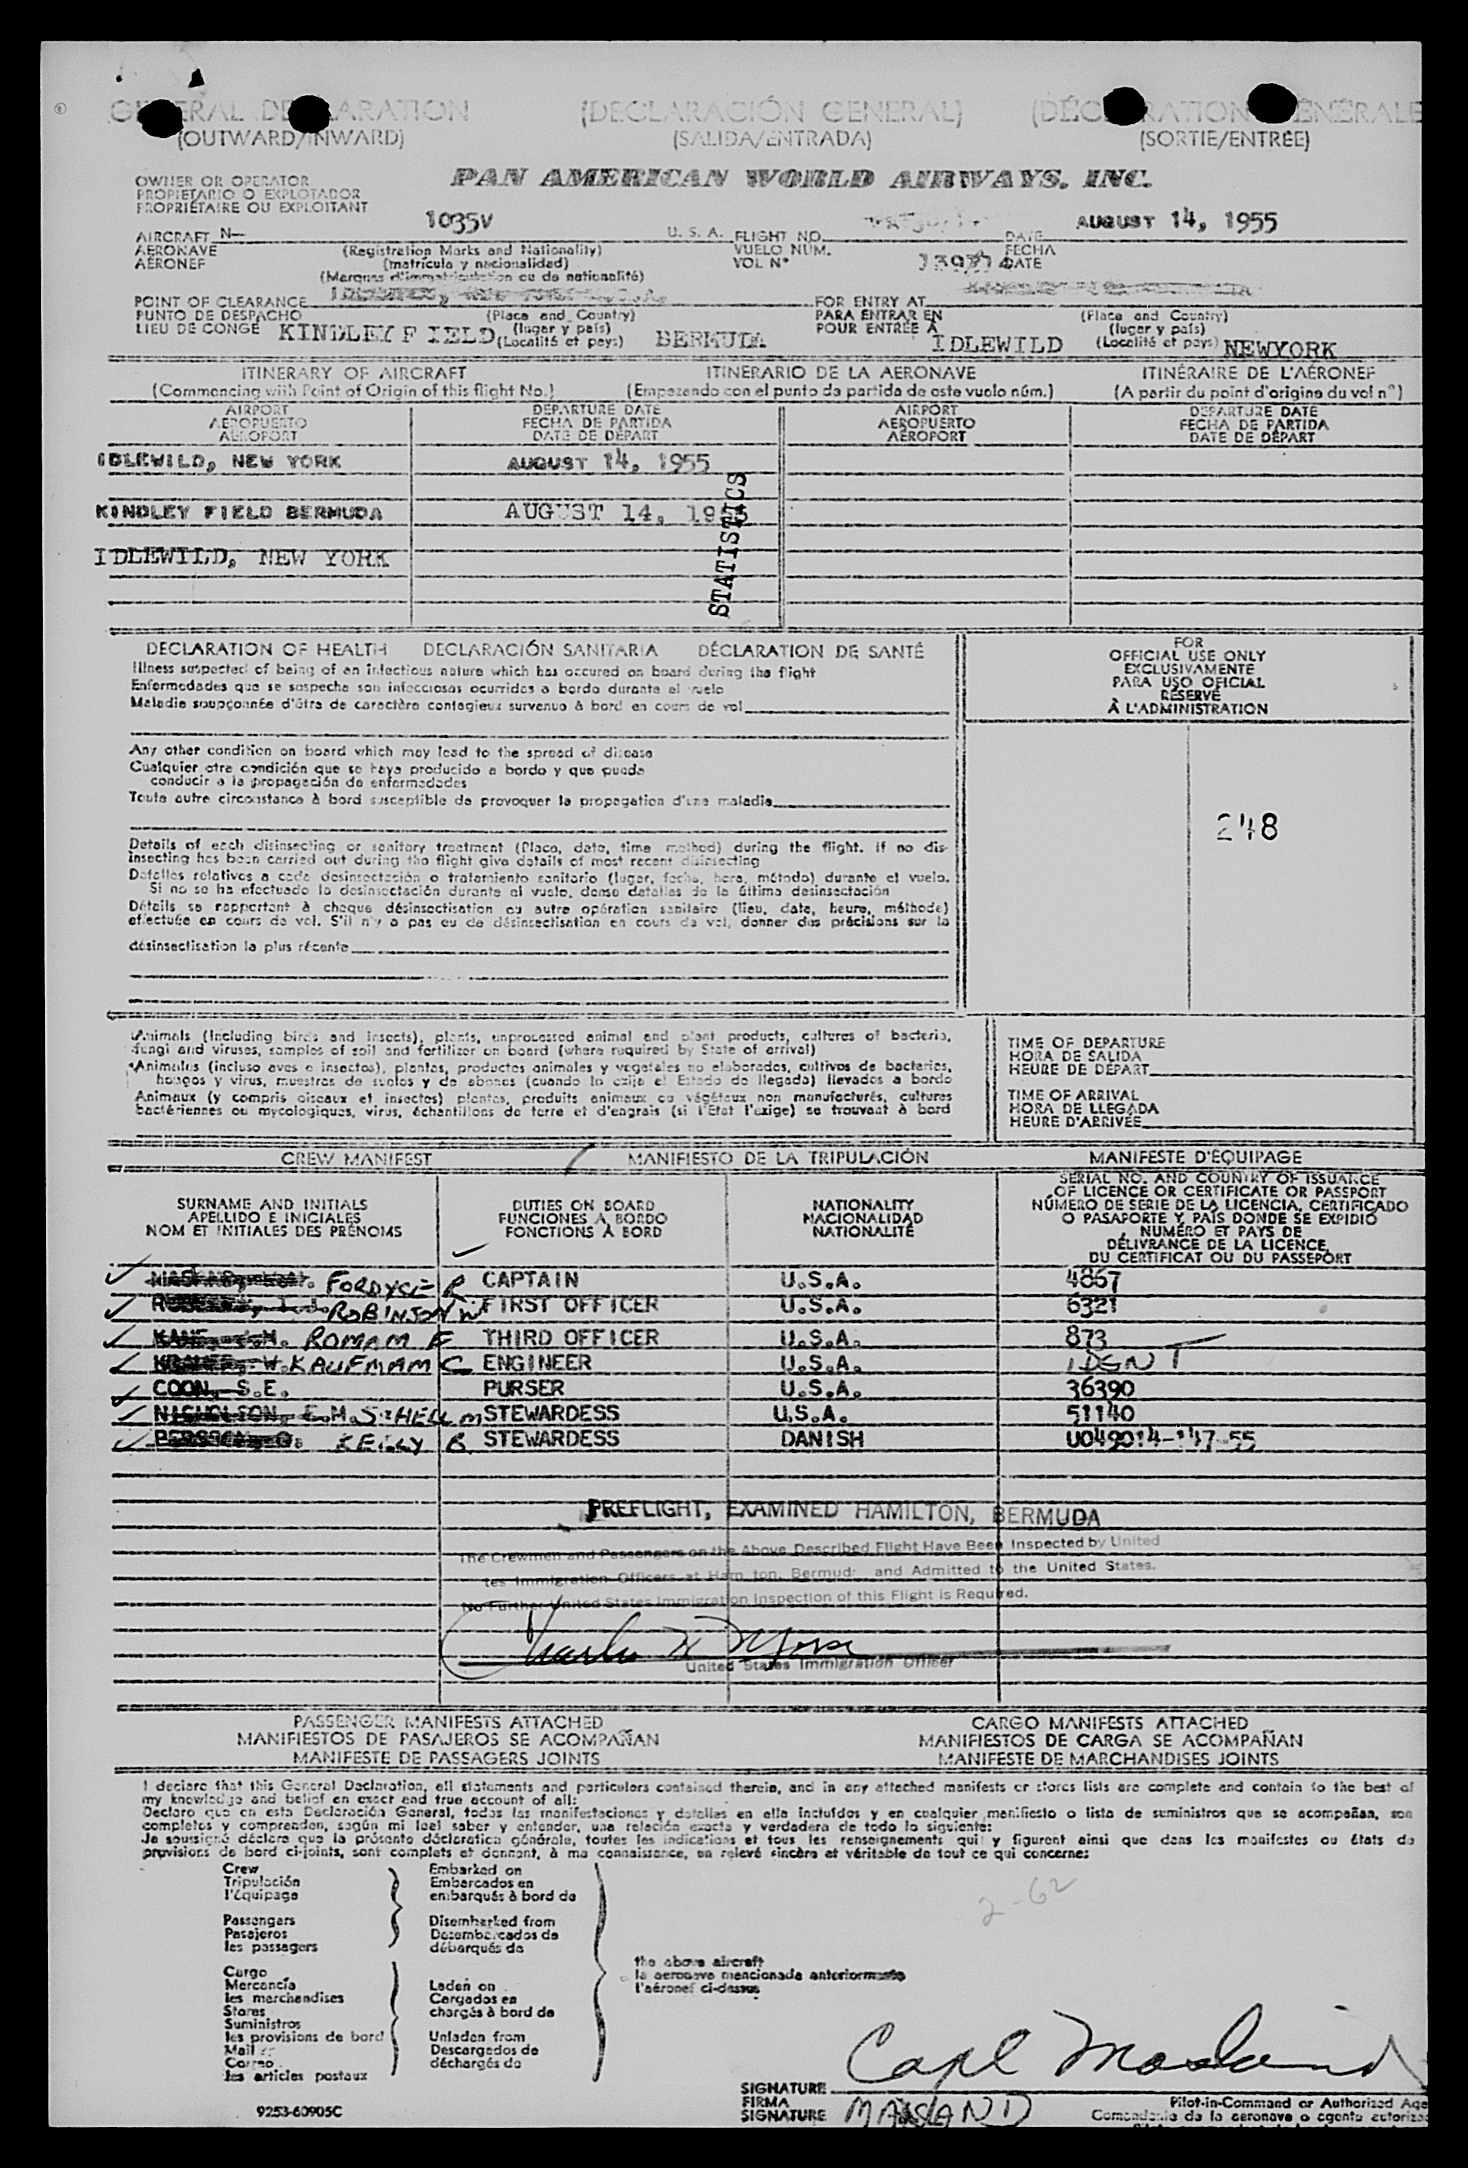 GENERAL DECLARATION (DECLARACIÓN GENERAL) (DÉCLARATION GÉNÉRALE
(OUTWARD/INWARD) (SALIDA/ENTRADA) (SORTIE/ENTRÉE)
OWNER OR OPERATOR
PROPIETARIO O EXPLOTADOR
PROPRIÉTAIRE OU EXPLOITANT
PAN AMERICAN WORLD AIRWAYS, INC.
AIRCRAFT N— 1035V U. S. A. FLIGHT NO. DATE AUGUST 14, 1955
AERONAVE (Registration Marks and Nationality) VUELO NÚM. FECHA
AÉRONEF (matrícula y nacionalidad) VOL N° DATE
(Marques d'immatriculation ou de nationalité)
POINT OF CLEARANCE FOR ENTRY AT
PUNTO DE DESPACHO (Place and Country) PARA ENTRAR EN (Place and Country)
LIEU DE CONGÉ KINDLEY FIELD (lugar y país) BERMUDA POUR ENTRÉE À IDLEWILD (lugar y país) NEWYORK
(Localité et pays) (Localité et pays)
ITINERARY OF AIRCRAFT ITINERARIO DE LA AERONAVE ITINÉRAIRE DE L'AÉRONEF
(Commencing with Point of Origin of this flight No.) (Empezando con el punto de partida de este vuelo núm.) (A partir du point d'origine du vol n°)
AIRPORT DEPARTURE DATE AIRPORT DEPARTURE DATE
AEROPUERTO FECHA DE PARTIDA AEROPUERTO FECHA DE PARTIDA
AÉROPORT DATE DE DÉPART AÉROPORT DATE DE DÉPART
IDLEWILD, NEW YORK AUGUST 14, 1955
KINDLEY FIELD BERMUDA AUGUST 14, 1955
IDLEWILD, NEW YORK
STATISTICS
DECLARATION OF HEALTH DECLARACIÓN SANITARIA DÉCLARATION DE SANTÉ
Illness suspected of being of an infectious nature which has occured on board during the flight
Enfermedades que se sospecha son infecciosas ocurridas a bordo durante el vuelo
Maladie soupçonnée d'être de caractère contagieux survenue à bord en cours de vol
FOR
OFFICIAL USE ONLY
EXCLUSIVAMENTE
PARA USO OFICIAL
RÉSERVÉ
À L'ADMINISTRATION
Any other condition on board which may lead to the spread of disease
Cualquier otra condición que se haya producido a bordo y que pueda
conducir a la propagación de enfermedades
Toute autre circonstance à bord susceptible de provoquer la propagation d'une maladie
248
Details of each disinsecting or sanitary treatment (Place, date, time method) during the flight. If no dis-
insecting has been carried out during the flight give details of most recent disinsecting
Detalles relativos a cada desinsectación o tratamiento sanitario (lugar, fecha, hora, método) durante el vuelo.
Si no se ha efectuado la desinsectación durante el vuelo, dense detalles de la última desinsectación
Détails se rapportant à chaque désinsectisation ou autre opération sanitaire (lieu, date, heure, méthode)
effectuée en cours de vol. S'il n'y a pas eu de désinsectisation en cours de vol, donner des précisions sur la
désinsectisation la plus récente
Animals (Including birds and insects), plants, unprocessed animal and plant products, cultures of bacteria,
fungi and viruses, samples of soil and fertilizer on board (where required by State of arrival)
Animales (incluso aves e insectos), plantas, productos animales y vegetales no elaborados, cultivos de bacterias,
hongos y virus, muestras de suelos y de abonos (cuando lo exija el Estado de llegada) llevados a bordo
Animaux (y compris oiseaux et insectes) plantes, produits animaux ou végétaux non manufacturés, cultures
bactériennes ou mycologiques, virus, échantillons de terre et d'engrais (si l'Etat l'exige) se trouvant à bord
TIME OF DEPARTURE
HORA DE SALIDA
HEURE DE DÉPART
TIME OF ARRIVAL
HORA DE LLEGADA
HEURE D'ARRIVÉE
CREW MANIFEST MANIFIESTO DE LA TRIPULACIÓN MANIFESTE D'ÉQUIPAGE
SURNAME AND INITIALS
APELLIDO E INICIALES
NOM ET INITIALES DES PRÉNOMS
DUTIES ON BOARD
FUNCIONES A BORDO
FONCTIONS À BORD
NATIONALITY
NACIONALIDAD
NATIONALITÉ
SERIAL NO. AND COUNTRY OF ISSUANCE
OF LICENCE OR CERTIFICATE OR PASSPORT
NÚMERO DE SERIE DE LA LICENCIA, CERTIFICADO
O PASAPORTE Y PAÍS DONDE SE EXPIDIÓ
NUMÉRO ET PAYS DE
DÉLIVRANCE DE LA LICENCE,
DU CERTIFICAT OU DU PASSEPORT
FORDYCE R CAPTAIN U.S.A. 4867
ROBINSON W FIRST OFFICER U.S.A. 6321
ROMAM F THIRD OFFICER U.S.A. 873
KAUFMAM C ENGINEER U.S.A. IDGNT
COON, S.E. PURSER U.S.A. 36390
NICHOLSON, E.M. SCHELL M STEWARDESS U.S.A. 51140
KELLY B STEWARDESS DANISH U049014-147-55
PREFLIGHT, EXAMINED HAMILTON, BERMUDA
The Crewmen and Passengers on the Above Described Flight Have Been Inspected by United
tes Immigration Officers at Ham ton, Bermud and Admitted to the United States.
No Further United States Immigration Inspection of this Flight is Required.
United States Immigration Officer
PASSENGER MANIFESTS ATTACHED CARGO MANIFESTS ATTACHED
MANIFIESTOS DE PASAJEROS SE ACOMPAÑAN MANIFIESTOS DE CARGA SE ACOMPAÑAN
MANIFESTE DE PASSAGERS JOINTS MANIFESTE DE MARCHANDISES JOINTS
I declare that this General Declaration, all statements and particulars contained therein, and in any attached manifests or stores lists are complete and contain to the best of
my knowledge and belief an exact and true account of all:
Declaro que en esta Declaración General, todas las manifestaciones y detalles en ella incluídos y en cualquier manifiesto o lista de suministros que se acompañan, son
completos y comprenden, según mi leal saber y entender, una relación exacta y verdadera de todo lo siguiente:
Je soussigné déclare que la présente déclaration générale, toutes les indications et tous les renseignements qui y figurent ainsi que dans les manifestes ou états de
provisions de bord ci-joints, sont complets et donnent, à ma connaissance, un relevé sincère et véritable de tout ce qui concerne:
Crew Embarked on
Tripulación Embarcados en
l'équipage embarqués à bord de
Passengers Disembarked from
Pasajeros Desembarcados de
les passagers débarqués de
2-62
the above aircraft
la aeronave mencionada anteriormente
l'aéronef ci-dessus
Cargo
Mercancía Laden on
les marchandises Cargados en
Stores chargés à bord de
Suministros
les provisions de bord Unladen from
Mail Descargados de
Correo déchargés de
les articles postaux
Capt Masland
SIGNATURE
FIRMA
SIGNATURE MASLAND
Pilot-in-Command or Authorized Age
Comandante de la aeronave o agente autoriza
9253-60905C